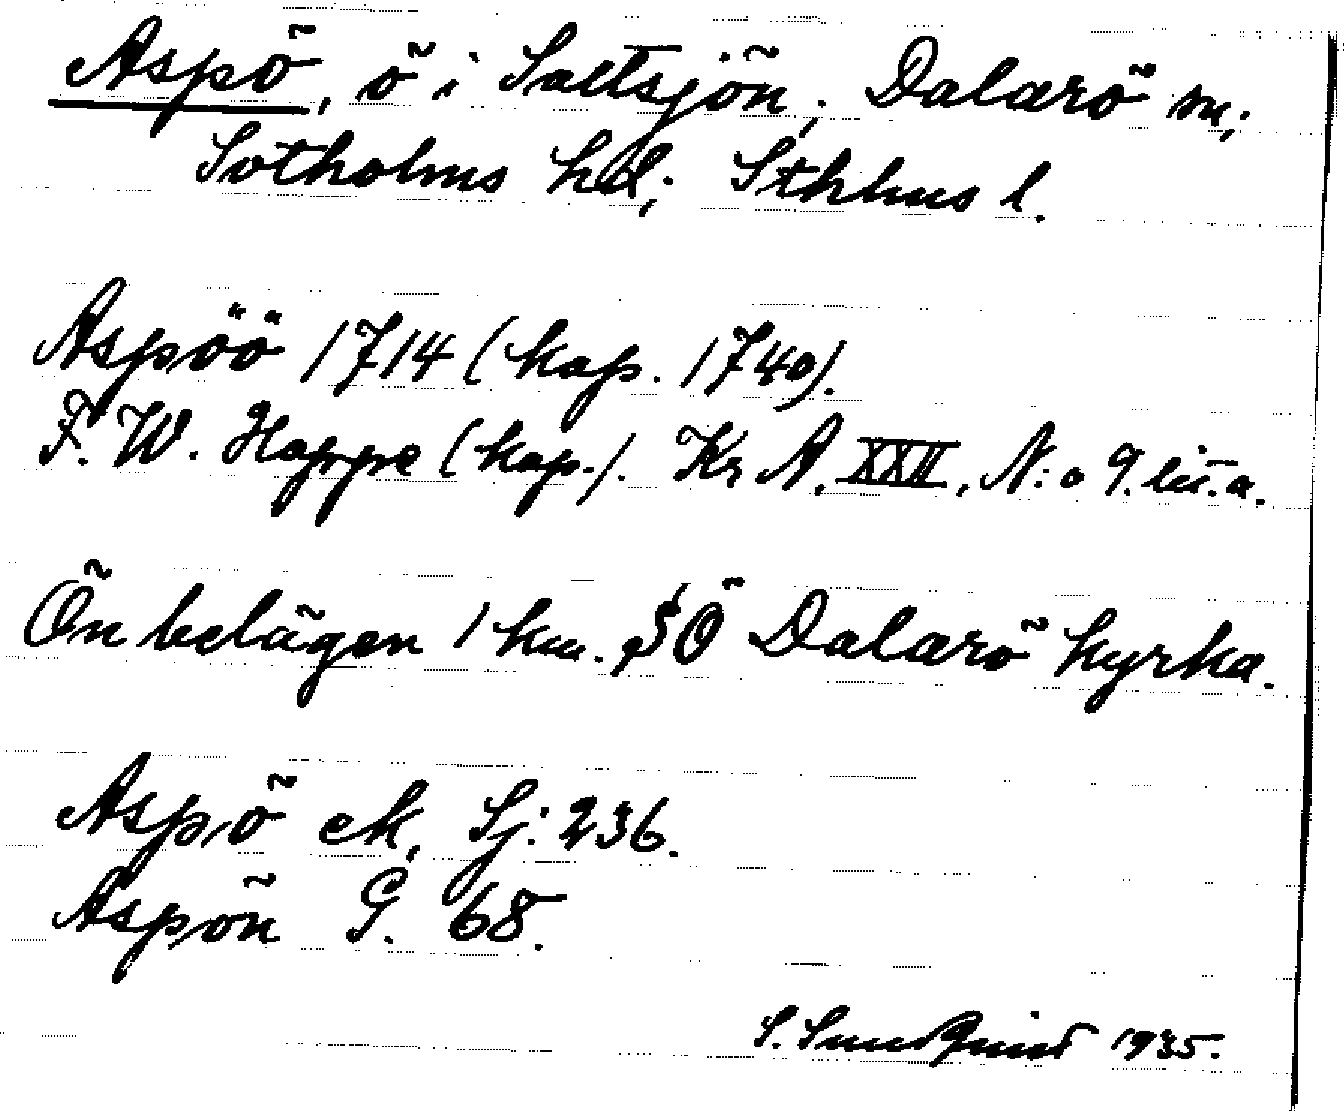 Aspö, ö i Saltsjön, Dalarö sn,
Sotholms hd, Sthlms l.
Aspöö 1714 (kop. 1740).
F. W. Hoppe (kop.). Kr A. XXII, N:o 9. lit. a.
Ön belägen 1 km. SÖ Dalarö kyrka.
Aspö ek, Sj: 236.
Aspön G. 68.
S. Sundquist 1935.